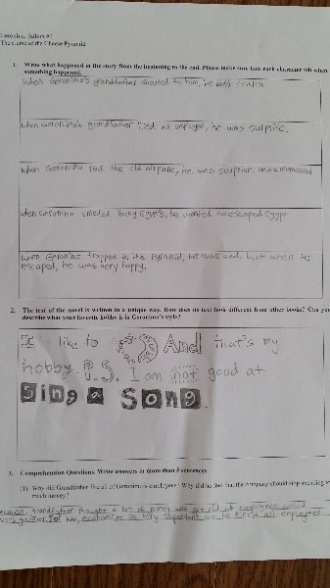 Geronimo Stilton #2
The Curse of the Cheese Pyramid
1. Write what happened in the story from the beginning to the end. Please make sure how each character felt when
something happened.
When Geronimo's grandfather shouted to him, he was
When Geronimo's grandfather fired an employee, he was surprise.
When Geronimo rod the old airplane, he was surprise and
When Geronimo smelled Egypt's, he wanted to escaped Egypt
When Geronimo trapped in the Pyramid, he was sad, but when he
escaped, he was very happy.
2. The text of the novel is written in a unique way. How does its text look different from other books? Can you
describe what your favorite hobby is in Geronimo's style?
I like to And that's my
hobby. P.S. I am not good at
Sing a Song.
3. Comprehension Questions. Write answers in more than 3 sentences
(1) Why did Grandfather fire all of Geronimo's employees? Why did he feel that the company should stop spending so
much money?
Grandfather thought a lot of money